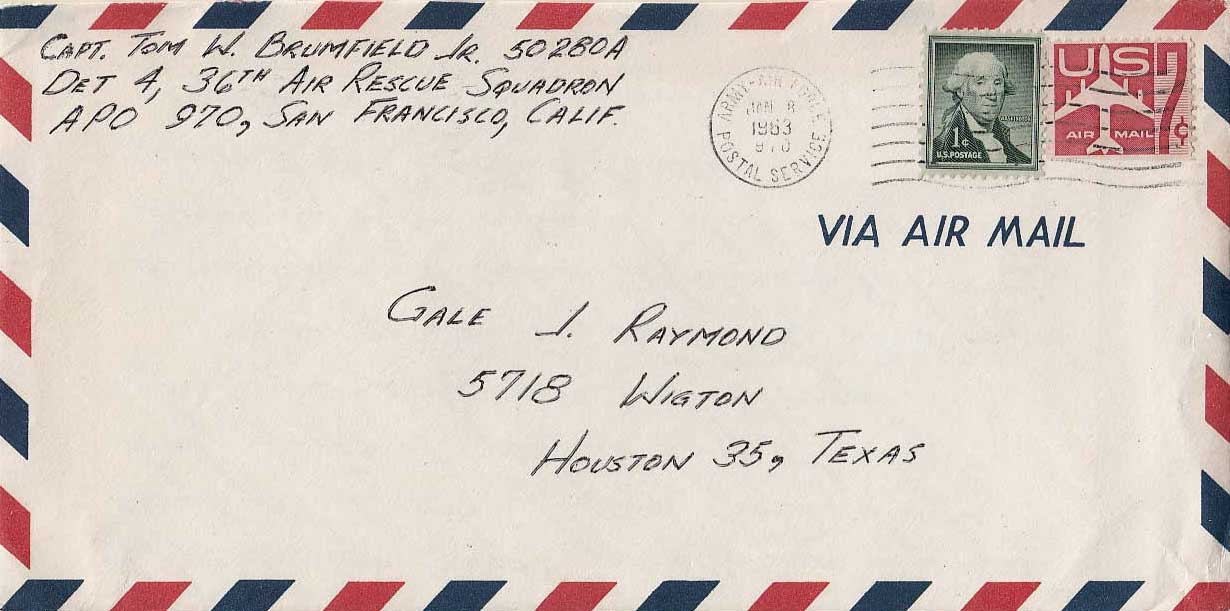 CAPT. TOM W. BRUMFIELD JR. 50280A
DET 4, 36TH AIR RESCUE SQUADRON
APO 970, SAN FRANCISCO, CALIF.
ARMY-AIR FORCE
JAN 8
1963
970
POSTAL SERVICE
WASHINGTON
1¢
U.S. POSTAGE
US
7¢
AIR MAIL
VIA AIR MAIL
GALE J. RAYMOND
5718 WIGTON
HOUSTON 35, TEXAS